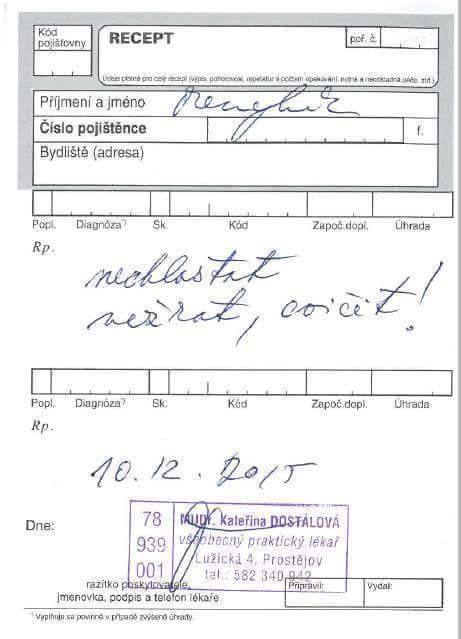 Kód
pojišťovny
RECEPT
poř. č.
Údaje platné pro celý recept (výpis, pohotovost, repetatur s počtem opakování, nutná a neodkladná péče, atd.)
Příjmení a jméno
Číslo pojištěnce
f.
Bydliště (adresa)
Popl. Diagnóza*) Sk. Kód Započ.dopl. Úhrada
Rp.
nechlastat
nežrat, cvičit!
Popl. Diagnóza*) Sk. Kód Započ.dopl. Úhrada
Rp.
10.12.2015
78
939
001
MUDr. Kateřina DOSTÁLOVÁ
všeobecný praktický lékař
Lužická 4, Prostějov
tel.: 582 340 942
Dne:
razítko poskytovatele,
jmenovka, podpis a telefon lékaře
Připravil:
Vydal:
*) Vyplňuje se povinně v případě zvýšené úhrady.